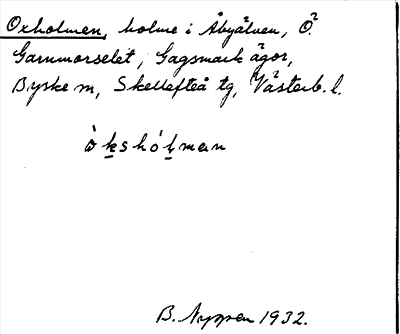 Oxholmen, holme i Åbyälven, Ö.
Garnmorselet, Gagsmark ägor,
Byske sn, Skellefteå tg, Västerb. l.
ò k̲ s h ó l̲ m e n
B. Nyppen 1932.